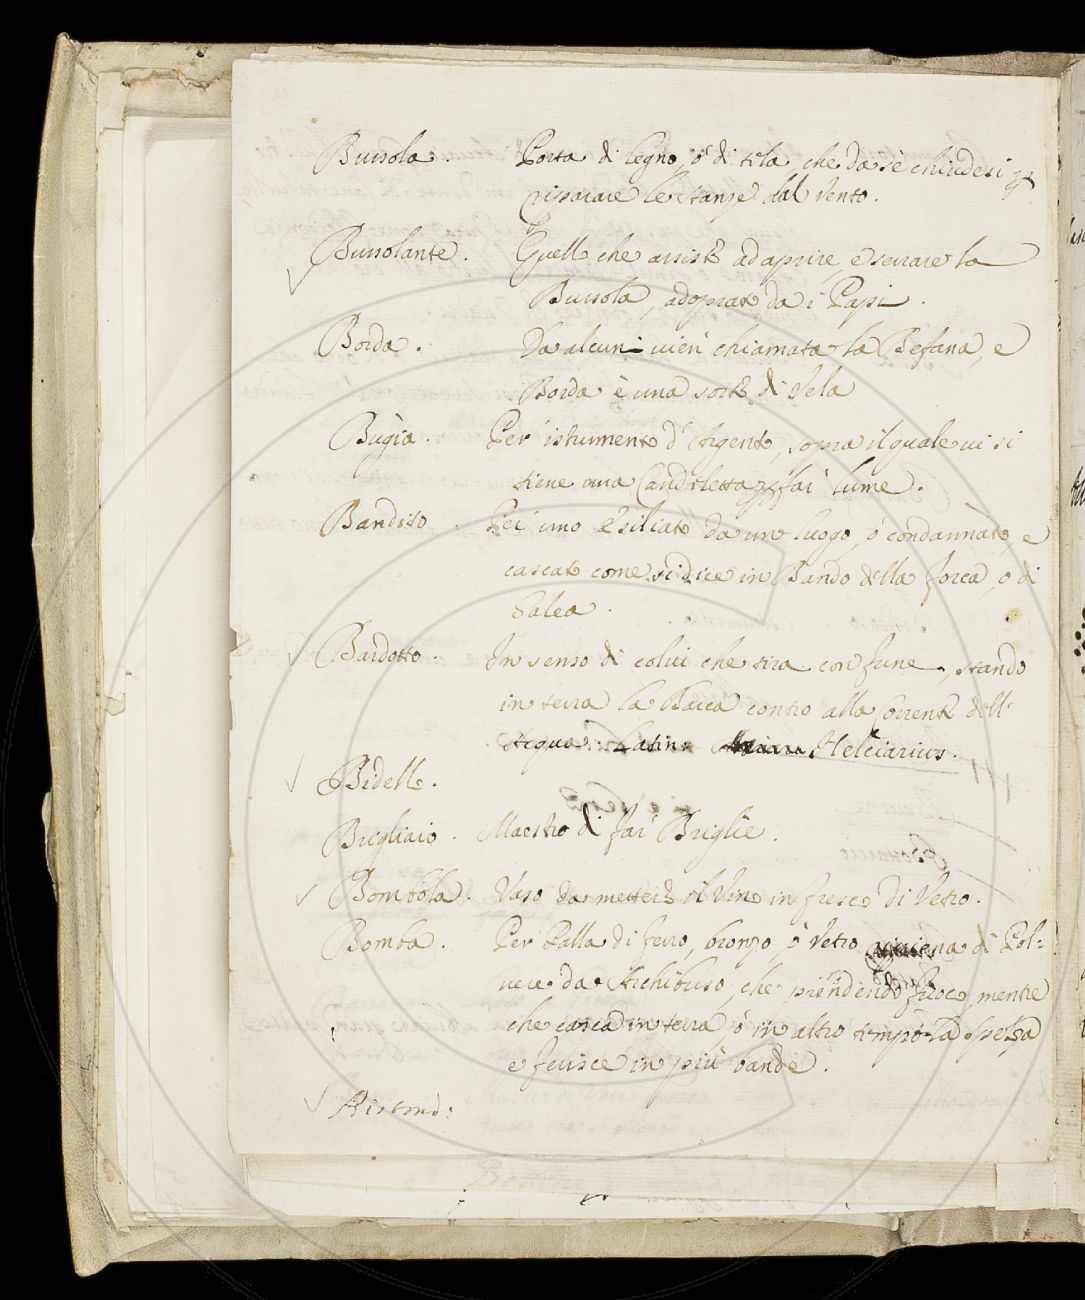 Bussola. Porta di legno, ò di tela che da sè chiudesi
riparare le stanze dal vento.
Bussolante. Quello che assiste ad aprire, e serrare la
Bussola, adoprato da i Papi.
Borda. Da alcuni vien chiamata la Befana, e
Borda è una sorte di vela
Bugìa. Per istrumento d'Argento, sopra il quale vi si
tiene una Candeletta far lume.
Bandito. Per uno esiliato da un luogo, ò condannato, e
cascato come si dice in Bando della forca, o di
Galea.
Bardotto. In senso di colui che tira con fune, stando
in terra la Barca contro alla Corrente dell'
Acqua: Latin: Helciarius.
Bidello.
Brigliaio. Maestro di far Briglie.
Bombola. Vaso da mettere il Vino in fresco di Vetro.
Bomba. Per Palla di ferro, bronzo, ò Vetro di Pol=
vere da Archibuso, che prendendo fuoco, mentre
che casca in terra, ò in altro tempo la spezza
e ferisce in più bande.